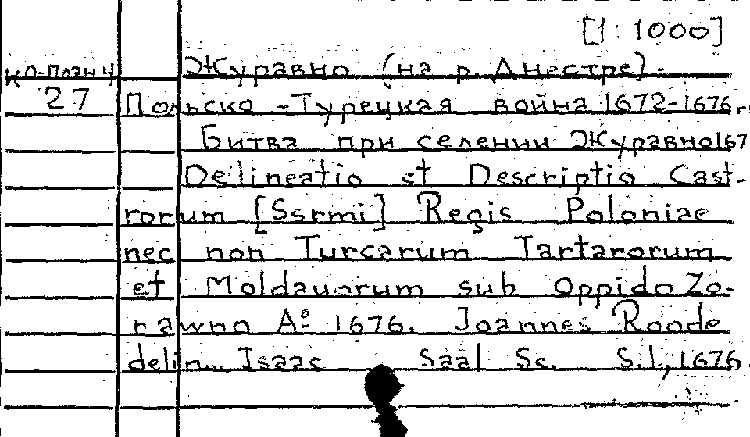 [1:1000]
Журавно (на р. Днестре).
27 Польско-Турецкая война 1672-1676 г.
Битва при селении Журавно 167
Delineatio et Descriptio Cast-
rorum [Ssrmi] Regis Poloniae
nec non Turcarum Tartarorum
et Moldauorum sub Oppido Zo-
rawno Aº 1676. Joannes Roode
delin. Isaac Saal Sc. S.l., 1676